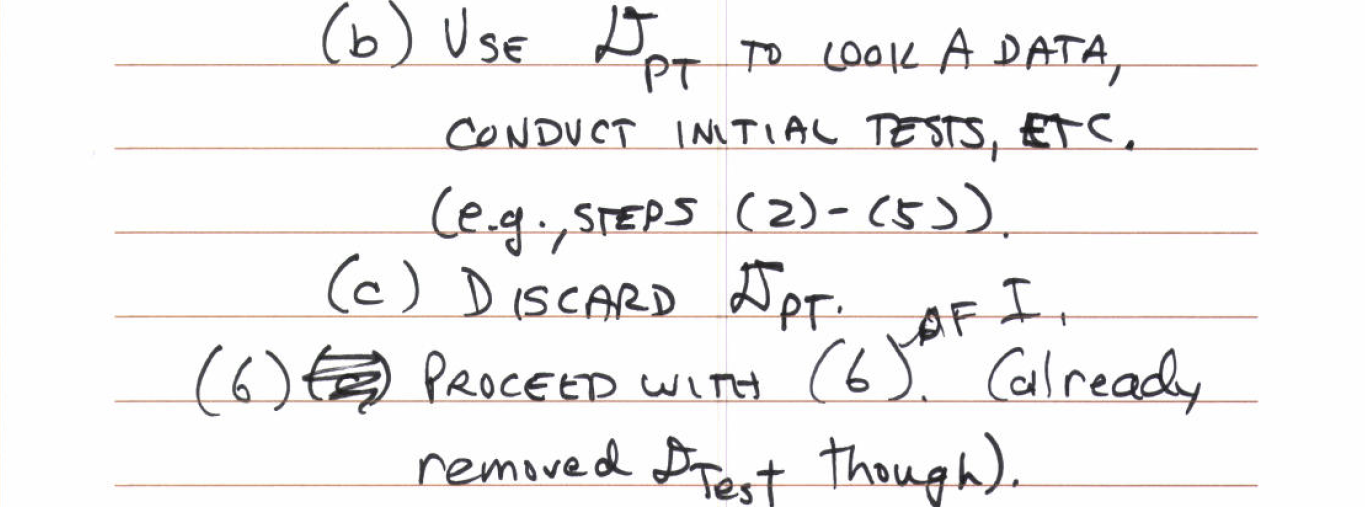 (b) USE 𝒟PT TO LOOK A DATA,
CONDUCT INITIAL TESTS, ETC.
(e.g., STEPS (2)-(5)).
(c) DISCARD 𝒟PT.
(6) PROCEED WITH (6) OF I. (already
removed 𝒟Test though).